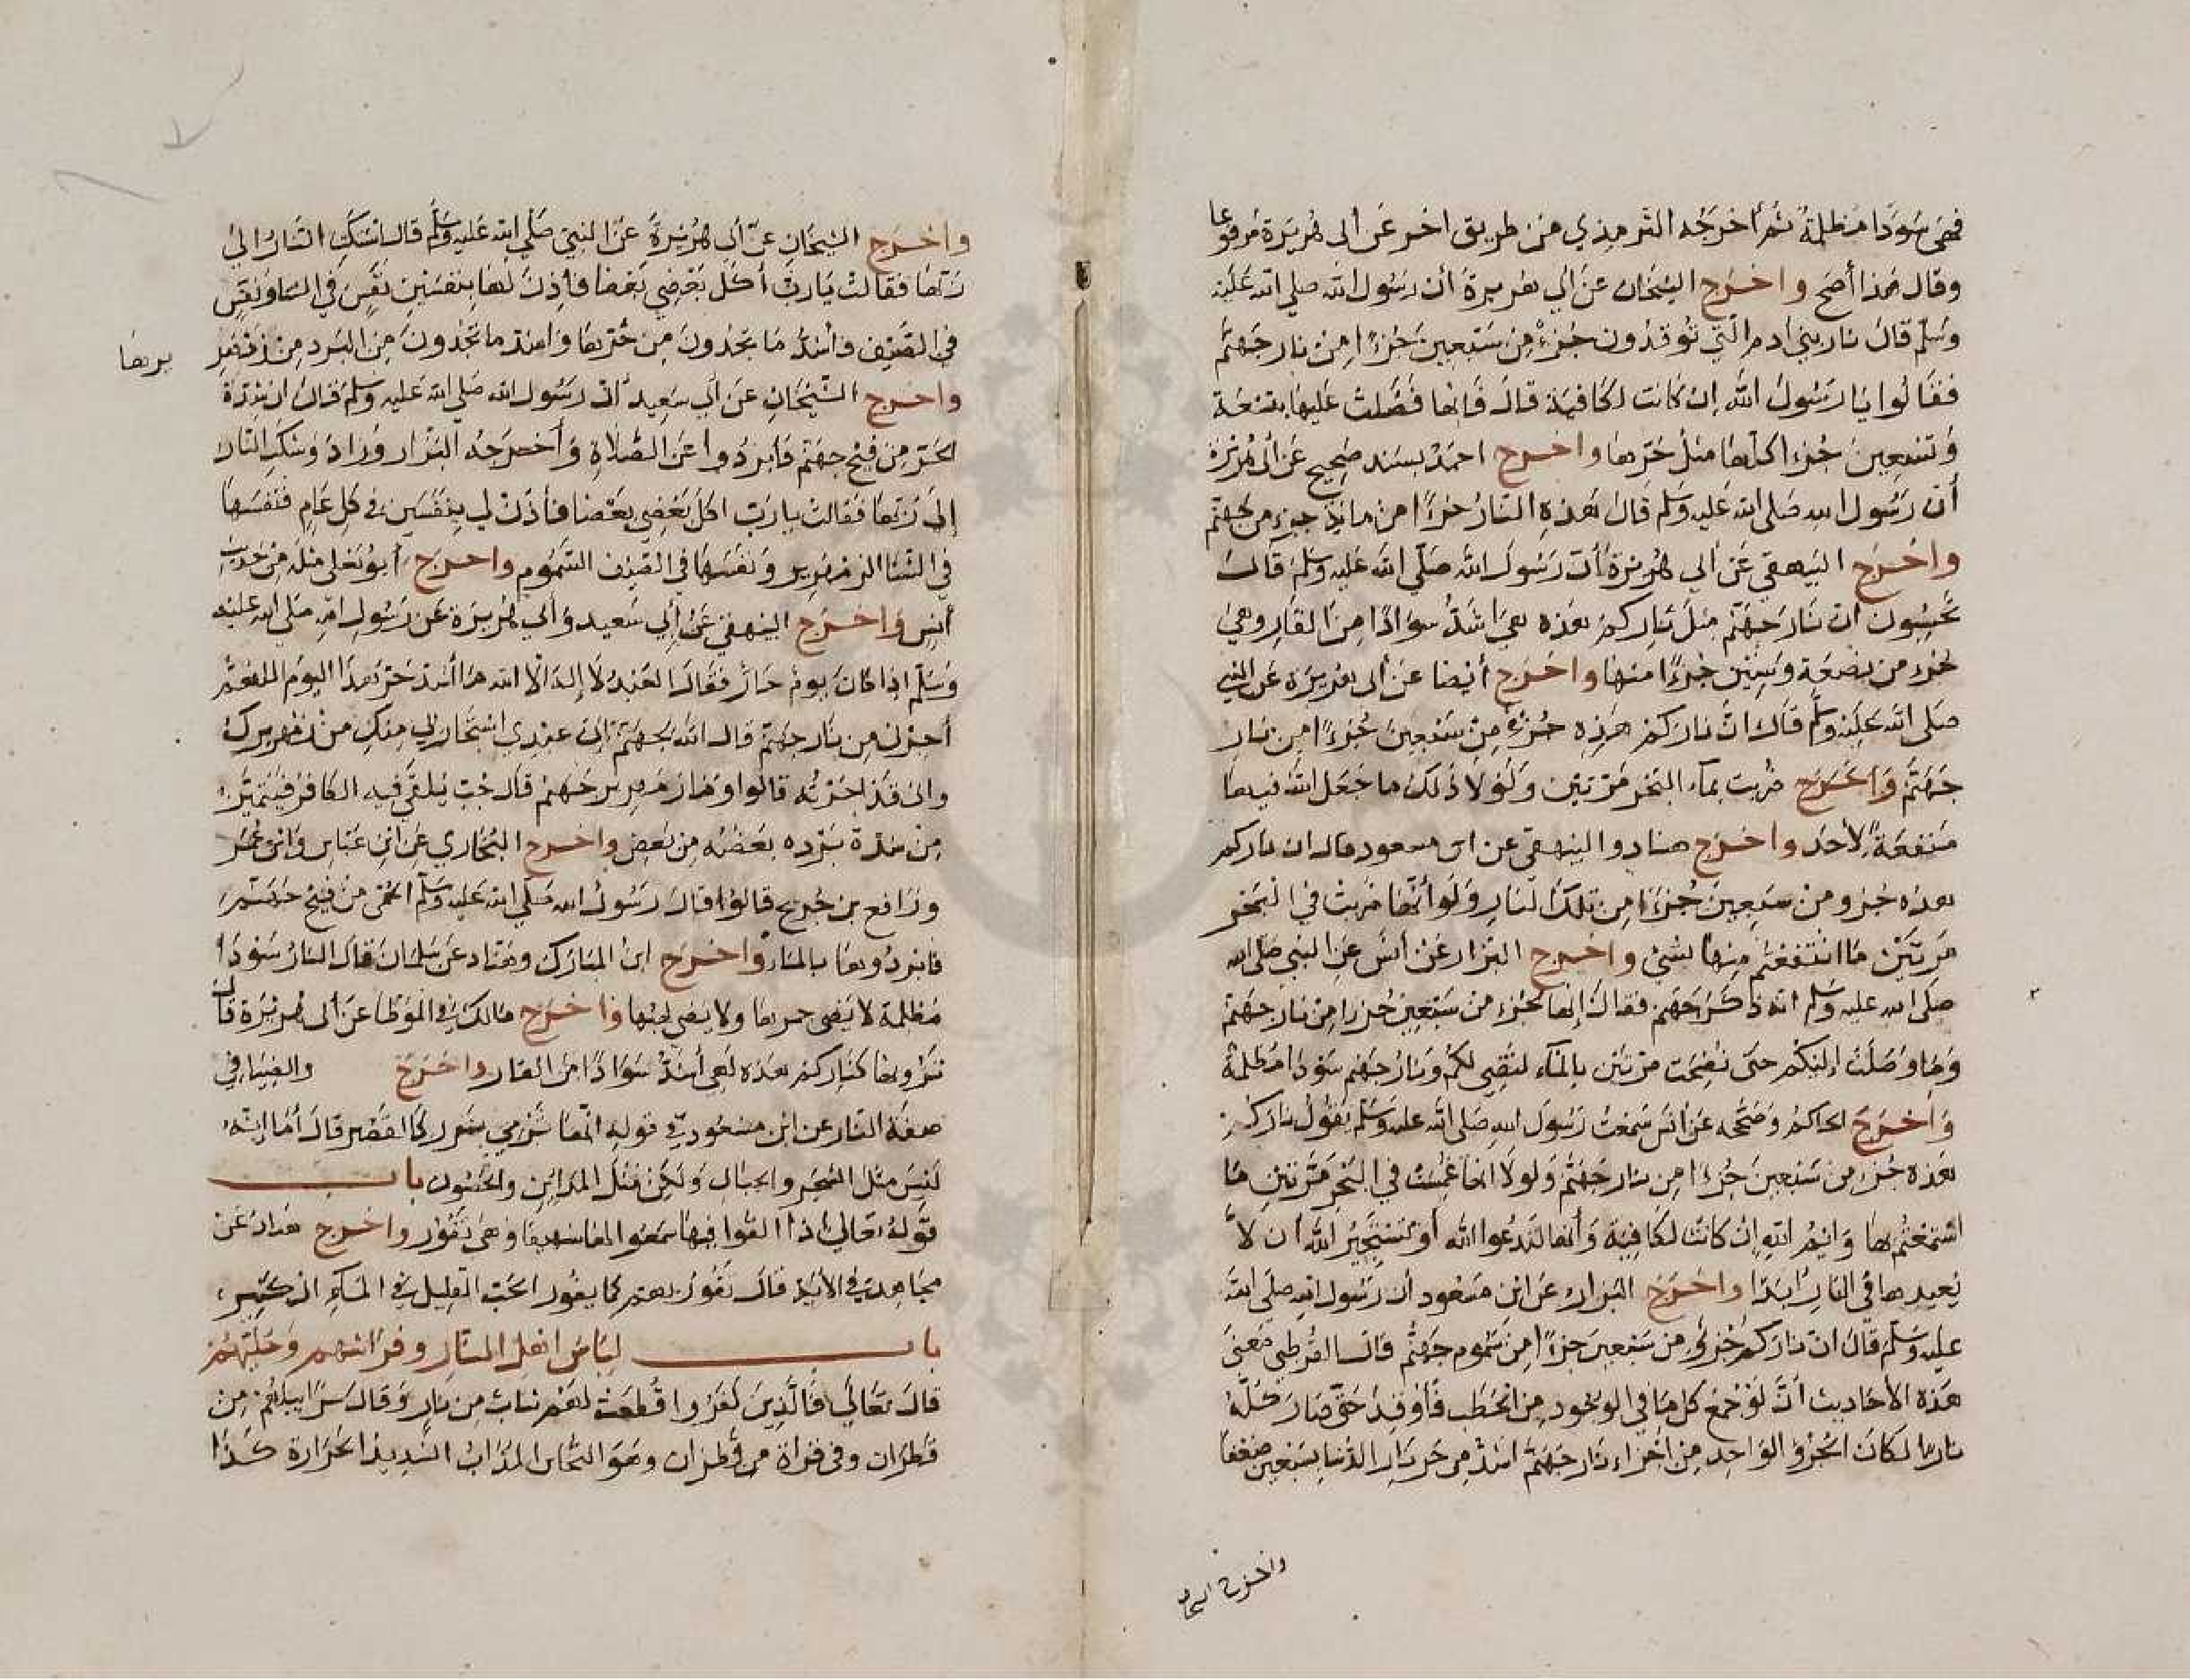 فهى سودا مظلمة ثم أخرجه الترمذي من طريق اخر عن أبى هريرة مرفوعا
وقال هذا أصح واخرج الشيخان عن أبي هريرة أن رسول الله صلى الله عليه
وسلم قال نار بني ادم التي توقدون جزء من سبعين جزءا من نار جهنم
فقالوا يا رسول الله إن كانت لكافية قال فانها فضلت عليها بتسعة
وتسعين جزءا كلها مثل حرها واخرج احمد بسند صحيح عن أبى هريرة
أن رسول الله صلى الله عليه وسلم قال هذه النار جزءا من ماية جزء من جهنم
واخرج البيهقي عن أبي هريرة أن رسول الله صلى الله عليه وسلم قال
تحسبون ان نار جهنم مثل ناركم هذه هي اشد سوادا من القار وهي
جزء من بضعة وستين جزءا منها واخرج أيضا عن أبى هريرة عن النبي
صلى الله عليه وسلم قال ان ناركم هذه جزء من سبعين جزءا من نار
جهنم واخرج ضربت بماء البحر مرتين ولولا ذلك ما جعل الله فيها
منفعة لأحد واخرج هناد والبيهقي عن ابن مسعود قال ان ناركم
هذه جزو من سبعين جزءا من تلك النار ولو أنها ضربت في البحر
مرتين ما انتفعتم منها بشئ واخرج البزار عن أنس عن النبي صلى الله
صلى الله عليه وسلم انه ذكر جهنم فقال إنها لجزء من سبعين جزءا من نار جهنم
وما وصلت إليكم حتى نضحت مرتين بالماء لتضي لكم ونار جهنم سودا مظلمة
واخرج الحاكم وصححه عن أنس سمعت رسول الله صلى الله عليه وسلم يقول ناركم
هذه جزء من سبعين جزءا من نار جهنم ولولا انها غمست في البحر مرتين ما
استمتعتم بها وايم الله إن كانت لكافية وأنها لتدعوا الله أو تستجير الله أن لا
يعيدها في النار أبدا واخرج البزار عن ابن مسعود أن رسول الله صلى الله
عليه وسلم قال ان ناركم جزء من سبعين جزءا من سموم جهنم قال القرطبي معنى
هذه الأحاديث أنه لو جمع كل ما في الوجود من الحطب فأوقد حتى صار كله
نارا لكان الجزؤ الواحد من اجزاء نار جهنم اشد من حر نار الدنيا بسبعين ضعفا
واخرج الشيخان
واخرج الشيخان عن أبي هريرة عن النبي صلى الله عليه وسلم قال اشتكت النار إلى
ربها فقالت يارب أكل بعضي بعضا فاذن لها بنفسين نفس في الشتا ونفس
في الصيف فأشد ما تجدون من حرها واشد ما تجدون من البرد من زمهر
يرها
واخرج الشيخان عن أبي سعيد أن رسول الله صلى الله عليه وسلم قال ان شدة
الحر من فيح جهنم فابردوا عن الصلاة وأخرجه البزار وزاد وشكت النار
إلى ربها فقالت يارب اكل بعضي بعضا فأذن لي بنفسين في كل عام فنفسها
في الشتا الزمهرير ونفسها في الصيف السموم واخرج أبو يعلى مثله من حديث
أنس واخرج البيهقي عن أبي سعيد وأبي هريرة عن رسول الله صلى الله عليه
وسلم إذا كان يوم حار فقال العبد لا إله الا الله ما أشد حر هذا اليوم اللهم
أجرنى من نار جهنم قال الله لجهنم إن عبدي استجار بي منك من زمهريرك
وانى قد اجرته قالوا وما زمهرير جهنم قال جب يلقى فيه الكافر فيتميز
من شدة برده بعضه من بعض واخرج البخاري عن ابن عباس وابن عمر
ورافع بن خديج قالوا قال رسول الله صلى الله عليه وسلم الحمى من فيح جهنم
فابردوها بالماء واخرج ابن المبارك وهناد عن سلمان قال النار سودا
مظلمة لا يضى جمرها ولا يضي لهبها واخرج مالك في الموطا عن أبى هريرة قال
تروها كناركم هذه لهي أشد سوادا من القار واخرج والضيا في
صفة النار عن ابن مسعود في قوله انها ترمي بشرر كالقصر قال أما إنه
ليس مثل الشجر والجبال ولكن مثل المداين والحصون باب
قوله تعالى اذا القوا فيها سمعوا لها شهيقا وهى تفور واخرج هناد عن
مجاهد في الأية قال تفور بهم كما يفور الحب القليل في الماء الكثير
باب لباس اهل النار وفراشهم وحليتهم
قال تعالى فالذين كفروا قطعت لهم ثياب من نار وقال سرابيلهم من
قطران وفى قراة من قطران وهو النحاس المذاب الشديد الحرارة كذا